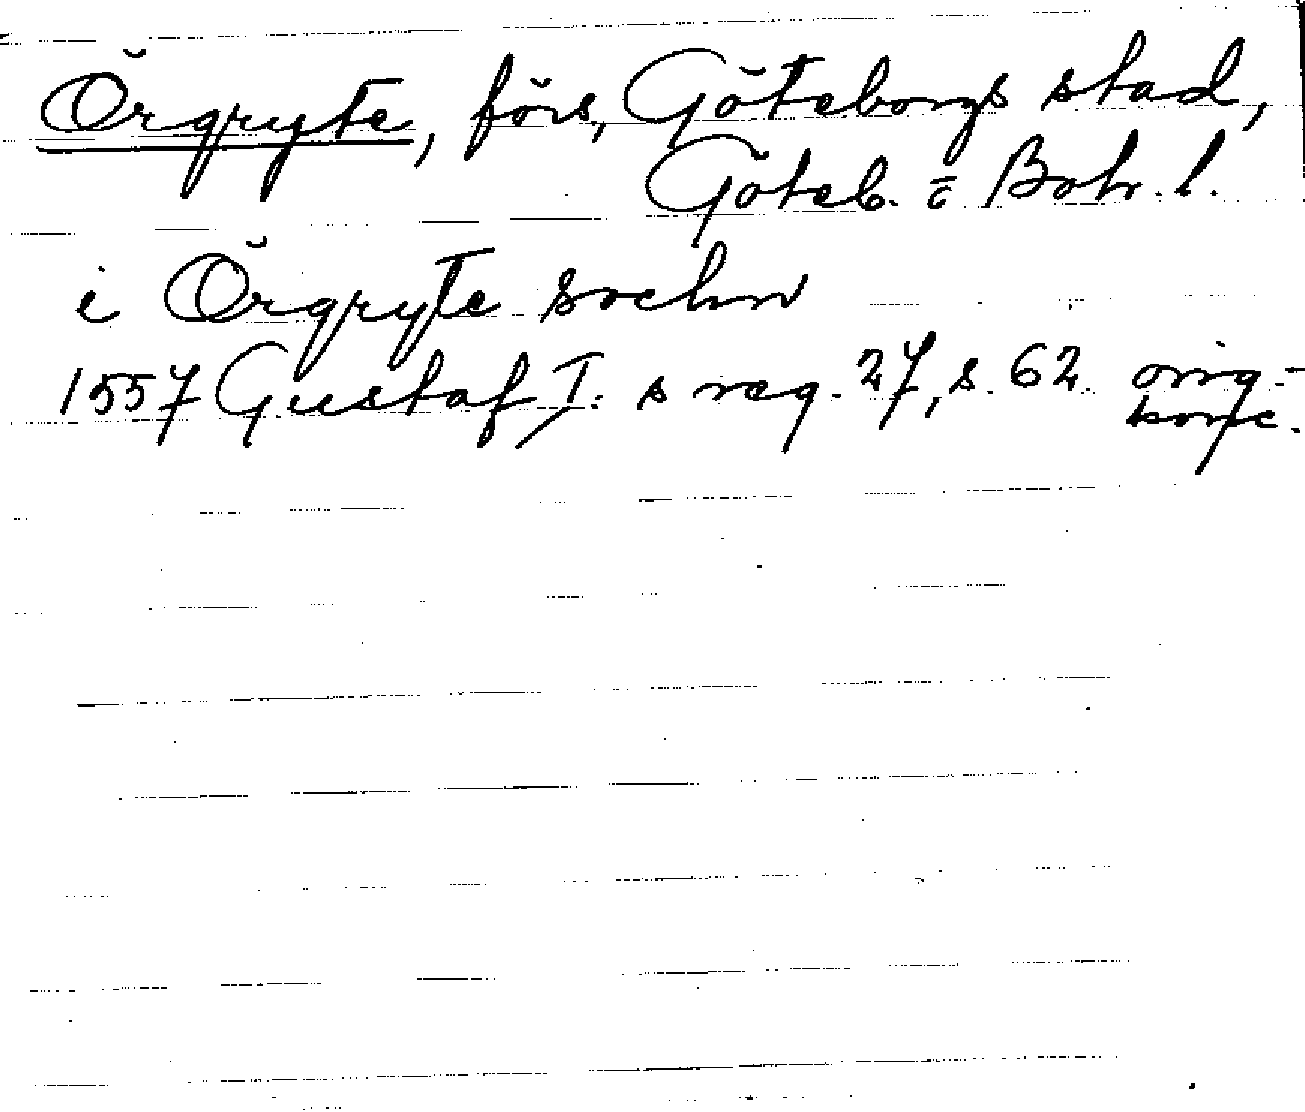 Örgryte, förs, Göteborgs stad,
Göteb. o Boh. l.
i Örgryte sochn
1557 Gustaf I: s reg. 27, s. 62 orig.-
konc.